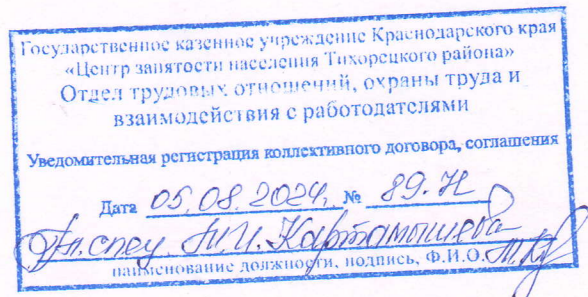 Государственное казенное учреждение Краснодарского края
«Центр занятости населения Тихорецкого района»
Отдел трудовых отношений, охраны труда и
взаимодействия с работодателями
Уведомительная регистрация коллективного договора, соглашения
Дата 05.08.2024, № 89-Н
Гл. спец. Т.И. Картамышева
наименование должности, подпись, Ф.И.О.